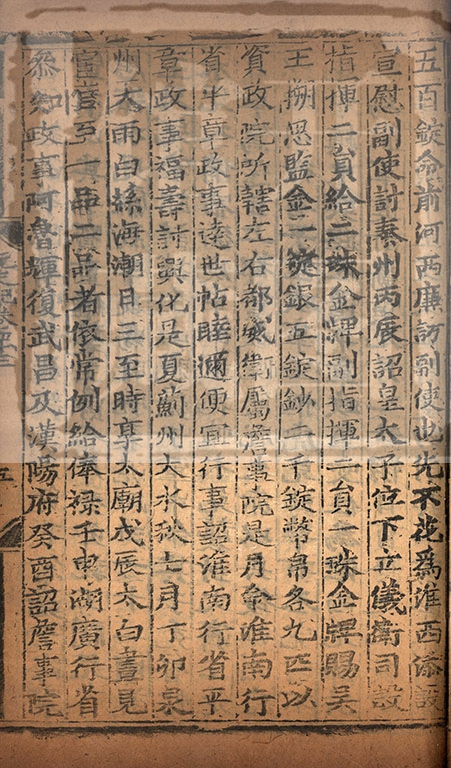 五百錠命前河西廉訪副使也先不花爲淮西添設
宣慰副使討泰州丙辰詔皇太子位下立儀衛司設
指揮二員給二珠金牌副指揮二員一珠金牌賜吳
王搠思監金二錠銀五錠鈔二千錠幣帛各九匹以
資政院所轄左右都威衛屬詹事院是月命淮南行
省平章政事達世帖睦邇便宜行事詔淮南行省平
章政事福壽討興化是夏薊州大水秋七月丁卯泉
州天雨白絲海潮日三至時享太廟戊辰太白晝見
宦官至一品二品者依常例給俸祿壬申湖廣行省
叅知政事阿魯輝復武昌及漢陽府癸酉詔詹事院
五